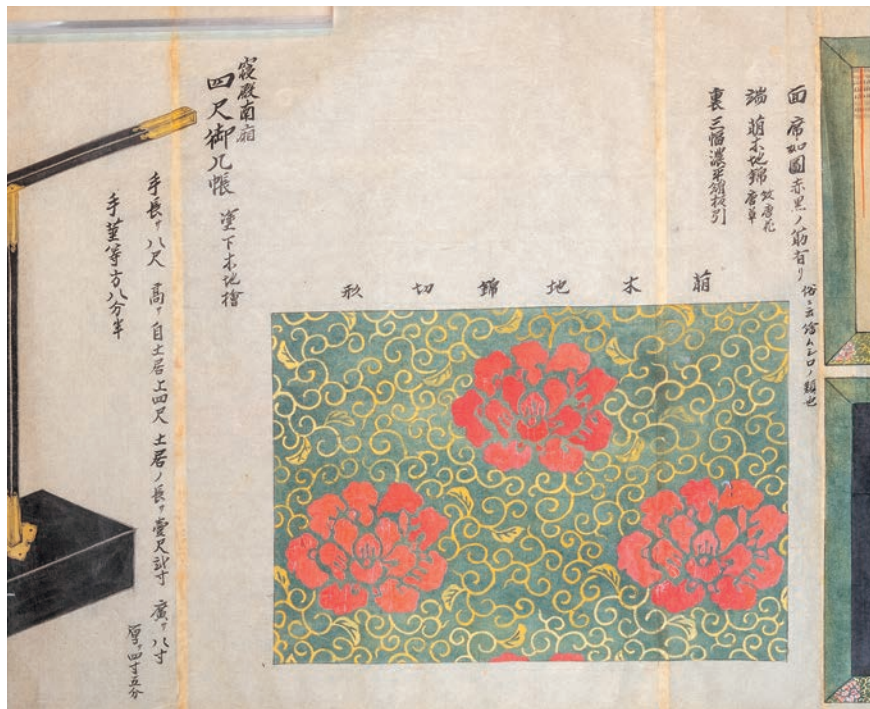 面 席如圖赤黒ノ筋有リ 俗ニ云繪ムシロノ類也
端 萠木地錦 紋唐花
唐草
裏 三幅濃平絹板引
萠木地錦切形
寝殿南廂
四尺御几帳 塗下木地檜
手長サ八尺 高サ自土居上四尺 土居ノ長サ壹尺貳寸 廣サ八寸
厚サ四寸五分
手茎等方八分半